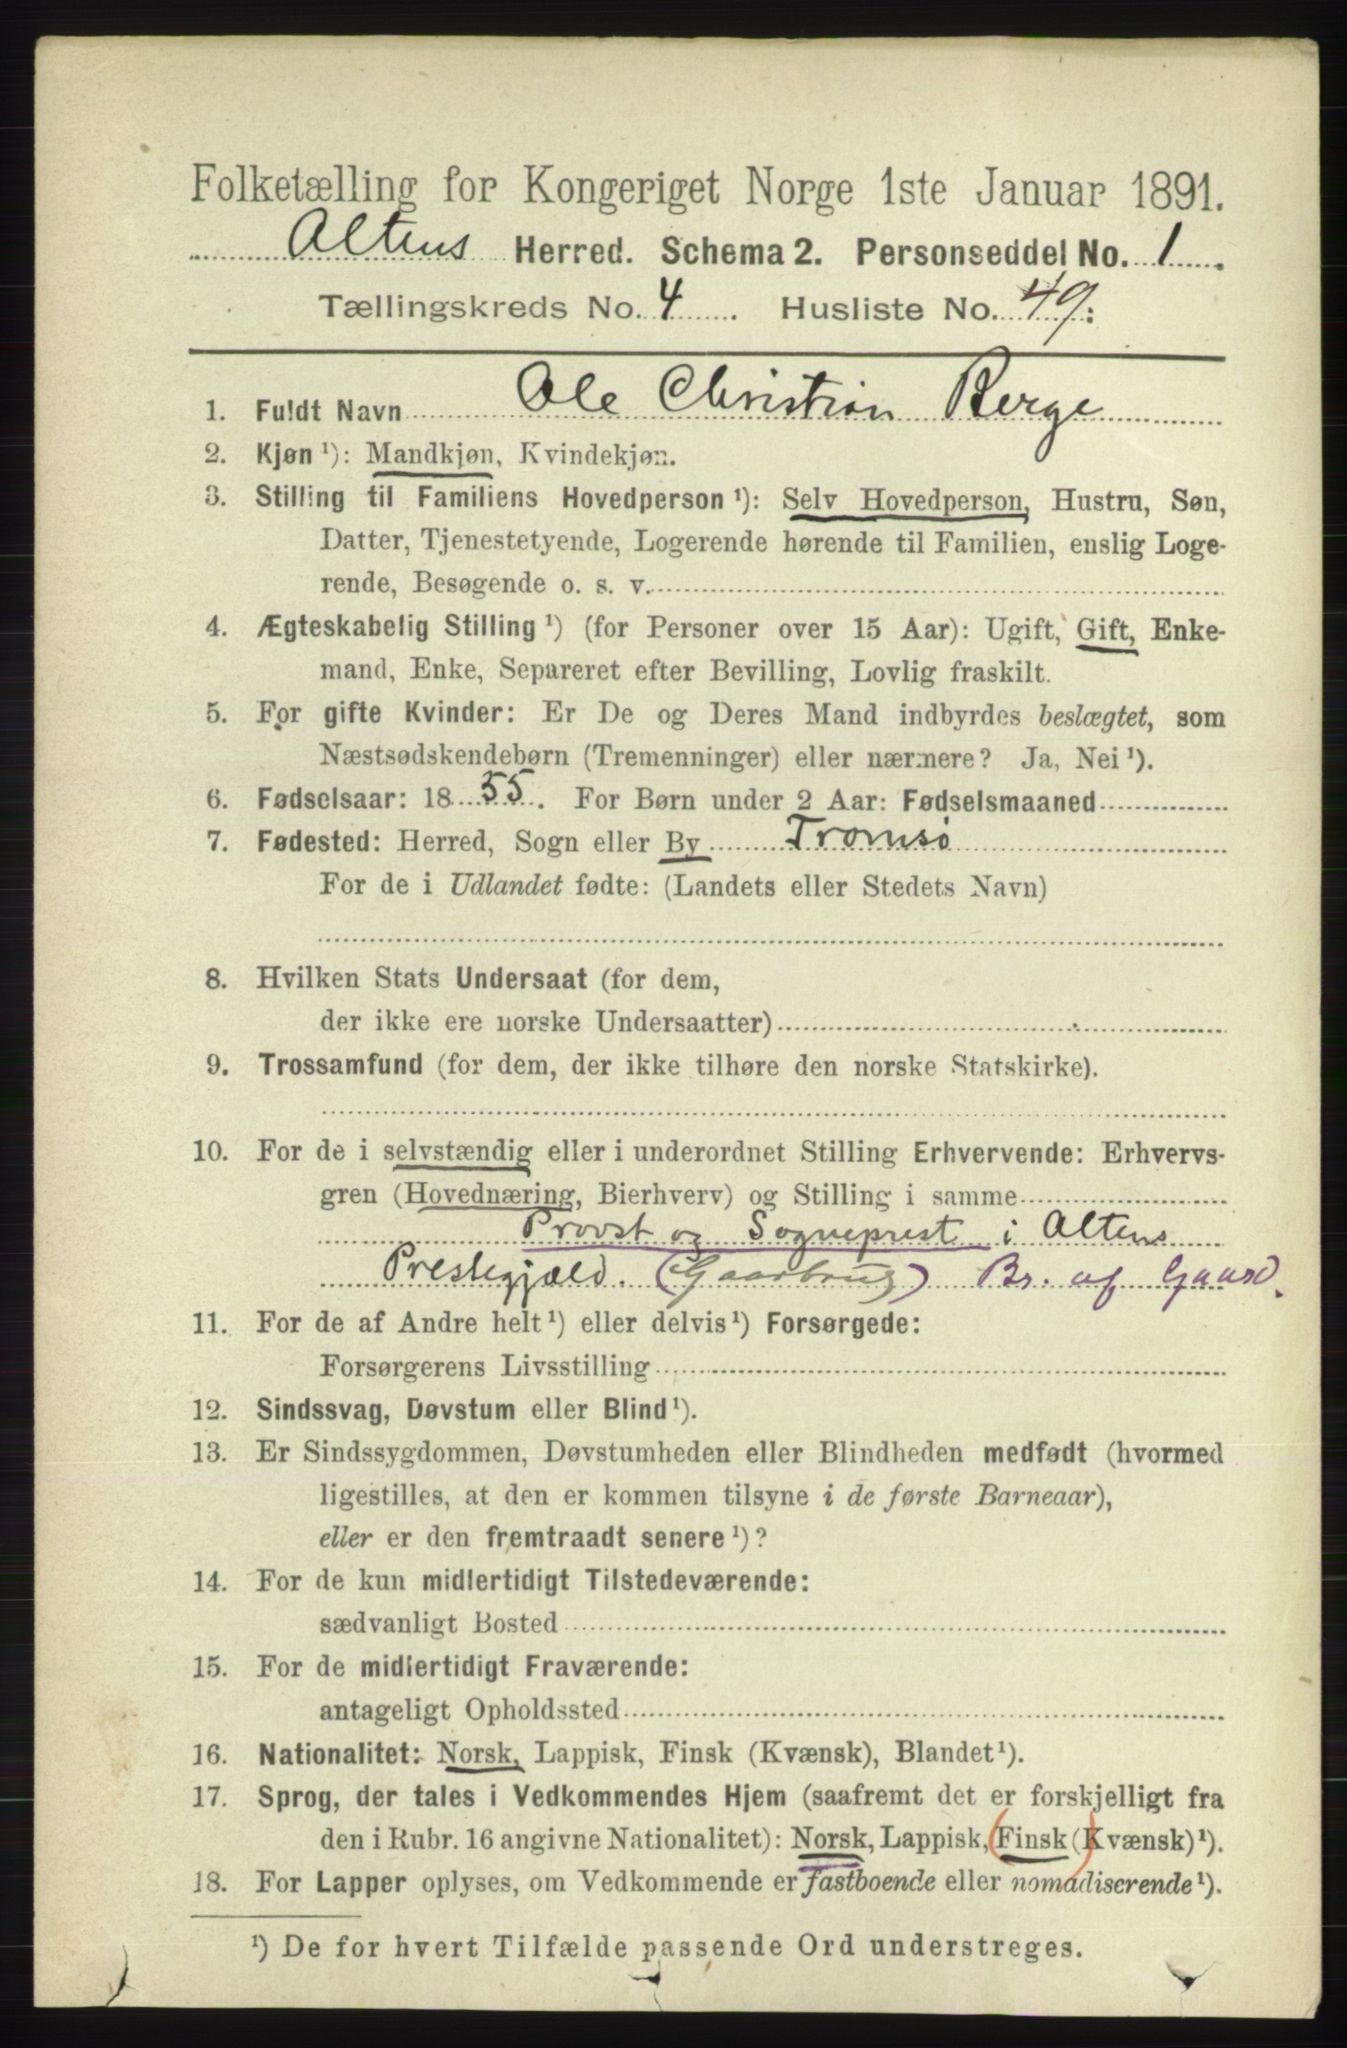 Folketælling for Kongeriget Norge 1ste Januar 1891.
Altens Herred. Schema 2. Personseddel No. 1.
Tællingskreds No. 4. Husliste No. 49.
1. Fuldt Navn Ole Christian Berge
2. Kjøn ¹): Mandkjøn, Kvindekjøn.
3. Stilling til Familiens Hovedperson ¹): Selv Hovedperson, Hustru, Søn,
Datter, Tjenestetyende, Logerende hørende til Familien, enslig Loge-
rende, Besøgende o. s. v.
4. Ægteskabelig Stilling ¹) (for Personer over 15 Aar): Ugift, Gift, Enke-
mand, Enke, Separeret efter Bevilling, Lovlig fraskilt.
5. For gifte Kvinder: Er De og Deres Mand indbyrdes beslægtet, som
Næstsødskendebørn (Tremenninger) eller nærmere? Ja, Nei ¹).
6. Fødselsaar: 1855. For Børn under 2 Aar: Fødselsmaaned
7. Fødested: Herred, Sogn eller By Tromsø
For de i Udlandet fødte: (Landets eller Stedets Navn)
8. Hvilken Stats Undersaat (for dem,
der ikke ere norske Undersaatter)
9. Trossamfund (for dem, der ikke tilhøre den norske Statskirke).
10. For de i selvstændig eller i underordnet Stilling Erhvervende: Erhvervs-
gren (Hovednæring, Bierhverv) og Stilling i samme
Provst og Sogneprest i Altens
Prestegjæld. (Gaarbrug) Br. af Gaard.
11. For de af Andre helt ¹) eller delvis ¹) Forsørgede:
Forsørgerens Livsstilling
12. Sindssvag, Døvstum eller Blind ¹).
13. Er Sindssygdommen, Døvstumheden eller Blindheden medfødt (hvormed
ligestilles, at den er kommen tilsyne i de første Barneaar),
eller er den fremtraadt senere ¹)?
14. For de kun midlertidigt Tilstedeværende:
sædvanligt Bosted
15. For de midlertidigt Fraværende:
antageligt Opholdssted
16. Nationalitet: Norsk, Lappisk, Finsk (Kvænsk), Blandet ¹).
17. Sprog, der tales i Vedkommendes Hjem (saafremt det er forskjelligt fra
den i Rubr. 16 angivne Nationalitet): Norsk, Lappisk, (Finsk (Kvænsk) ¹).
18. For Lapper oplyses, om Vedkommende er fastboende eller nomadiserende ¹).
¹) De for hvert Tilfælde passende Ord understreges.